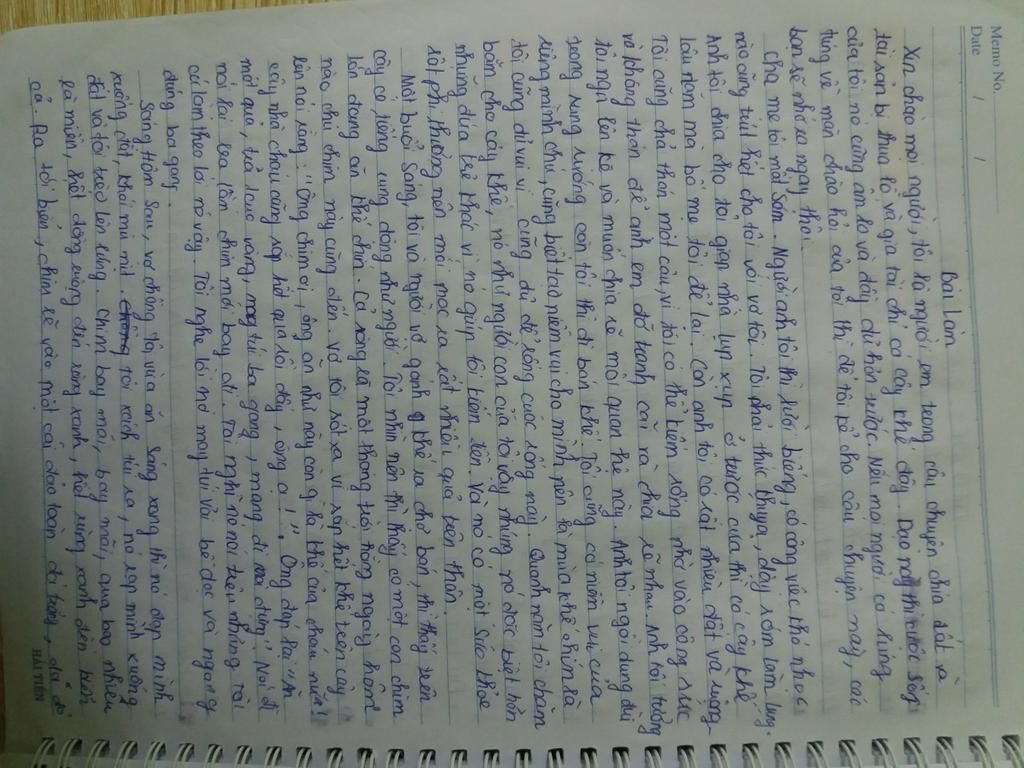 Memo No.
Date / /
Bài làm
Xin chào mọi người, tôi là người em trong câu chuyện chia đất và
tài sản bị thua lỗ và gia tài chỉ có cây khế đấy. Dạo này thì cuộc sống
của tôi nó cũng ấm no và đầy đủ hơn trước nếu mọi người có hứng
từng về màn chào hỏi của tôi thì để tôi kể cho câu chuyện này, các
bạn sẽ nhớ ra ngay thôi.
Cha mẹ tôi mất sớm. Người anh tôi thì lười biếng, có công việc khó nhọc
nào cũng trút hết cho tôi với vợ tôi. Tôi phải thức khuya, dậy sớm làm lụng.
Anh tôi chia cho tôi gian nhà lụp xụp ở trước cửa thì có cây khế.
Tôi cũng chả than một câu, vì tôi có thể kiếm sống nhờ vào công sức
lâu năm mà bố mẹ tôi để lại. Còn anh tôi có rất nhiều đất và ruộng
và không thân để anh em đỡ tranh cãi ra chia sẽ nhau. Anh tôi tưởng
tôi ngu lên kế và muốn chia sẽ mối quan hệ này. Anh tôi ngồi dung đùi
trong sung sướng còn tôi thì đi bán khế. Tôi cũng có niềm vui của
riêng mình chứ, cũng biết tạo niềm vui cho mình nên tới mùa khế chín là
tôi cũng đi vui vì cũng đủ để sống cuộc sống này. Quanh năm tôi chăm
bẵm cho cây khế, nó như người con của tôi vậy nhưng nó đặc biệt hơn
những đứa trẻ khác vì nó giúp tôi kiếm tiền. Và nó có một sức khỏe
rất phi thường nên mới mọc ra rất nhiều quả trên thân.
Một buổi sáng, tôi và người vợ gánh khế ra chợ bán, thì thấy trên
cây có tiếng rung động như người. Tôi nhìn lên thì thấy có một con chim
lớn đang ăn khế chín. Cả ròng rã một tháng trời ròng ngày hôm
nào chú chim này cũng đến. Vợ tôi xót xa vì sắp hết khế trên cây
lên nói rằng: "Ông chim ơi, ông ăn như này còn gì là khế của cháu nữa!
cây nhà cháu cũng sắp hết quả rồi đấy, ông ạ!". Ông đáp lại "ăn
một quả, trả 1 cục vàng, may túi ba gang, mang đi mà đựng". Nói đi
nói lại ba lần chim mới bay đi. Tôi nghĩ nó nói trêu nhưng tôi
cứ làm theo lời nó vậy. Tôi nghe lời nó may túi vải bề dọc và ngang
đúng ba gang.
Sáng hôm sau, vợ chồng tôi vừa ăn sáng xong thì nó đáp mình
xuống đất, khói mù mịt tôi xách túi ra, nó rạp mình xuống
đất và tôi trèo lên lưng. Chim bay mãi, bay mãi, qua bao nhiêu
là miền, hết đồng ruộng đến rừng xanh, hết rừng xanh đến biển
cả. Ra tới biển, chim rẽ vào một cái đảo toàn đá trắng, đá đỏ
HẢI TIẾN